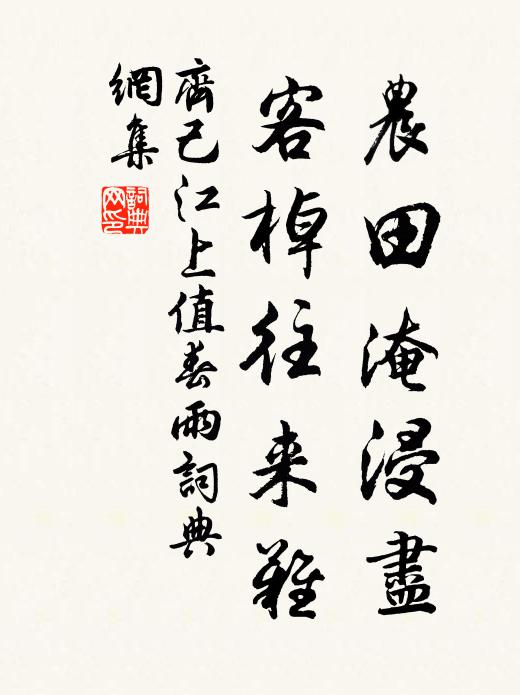 農田淹浸盡
客棹往来難
齊己江上值春雨詞典
網集
詞典
网印